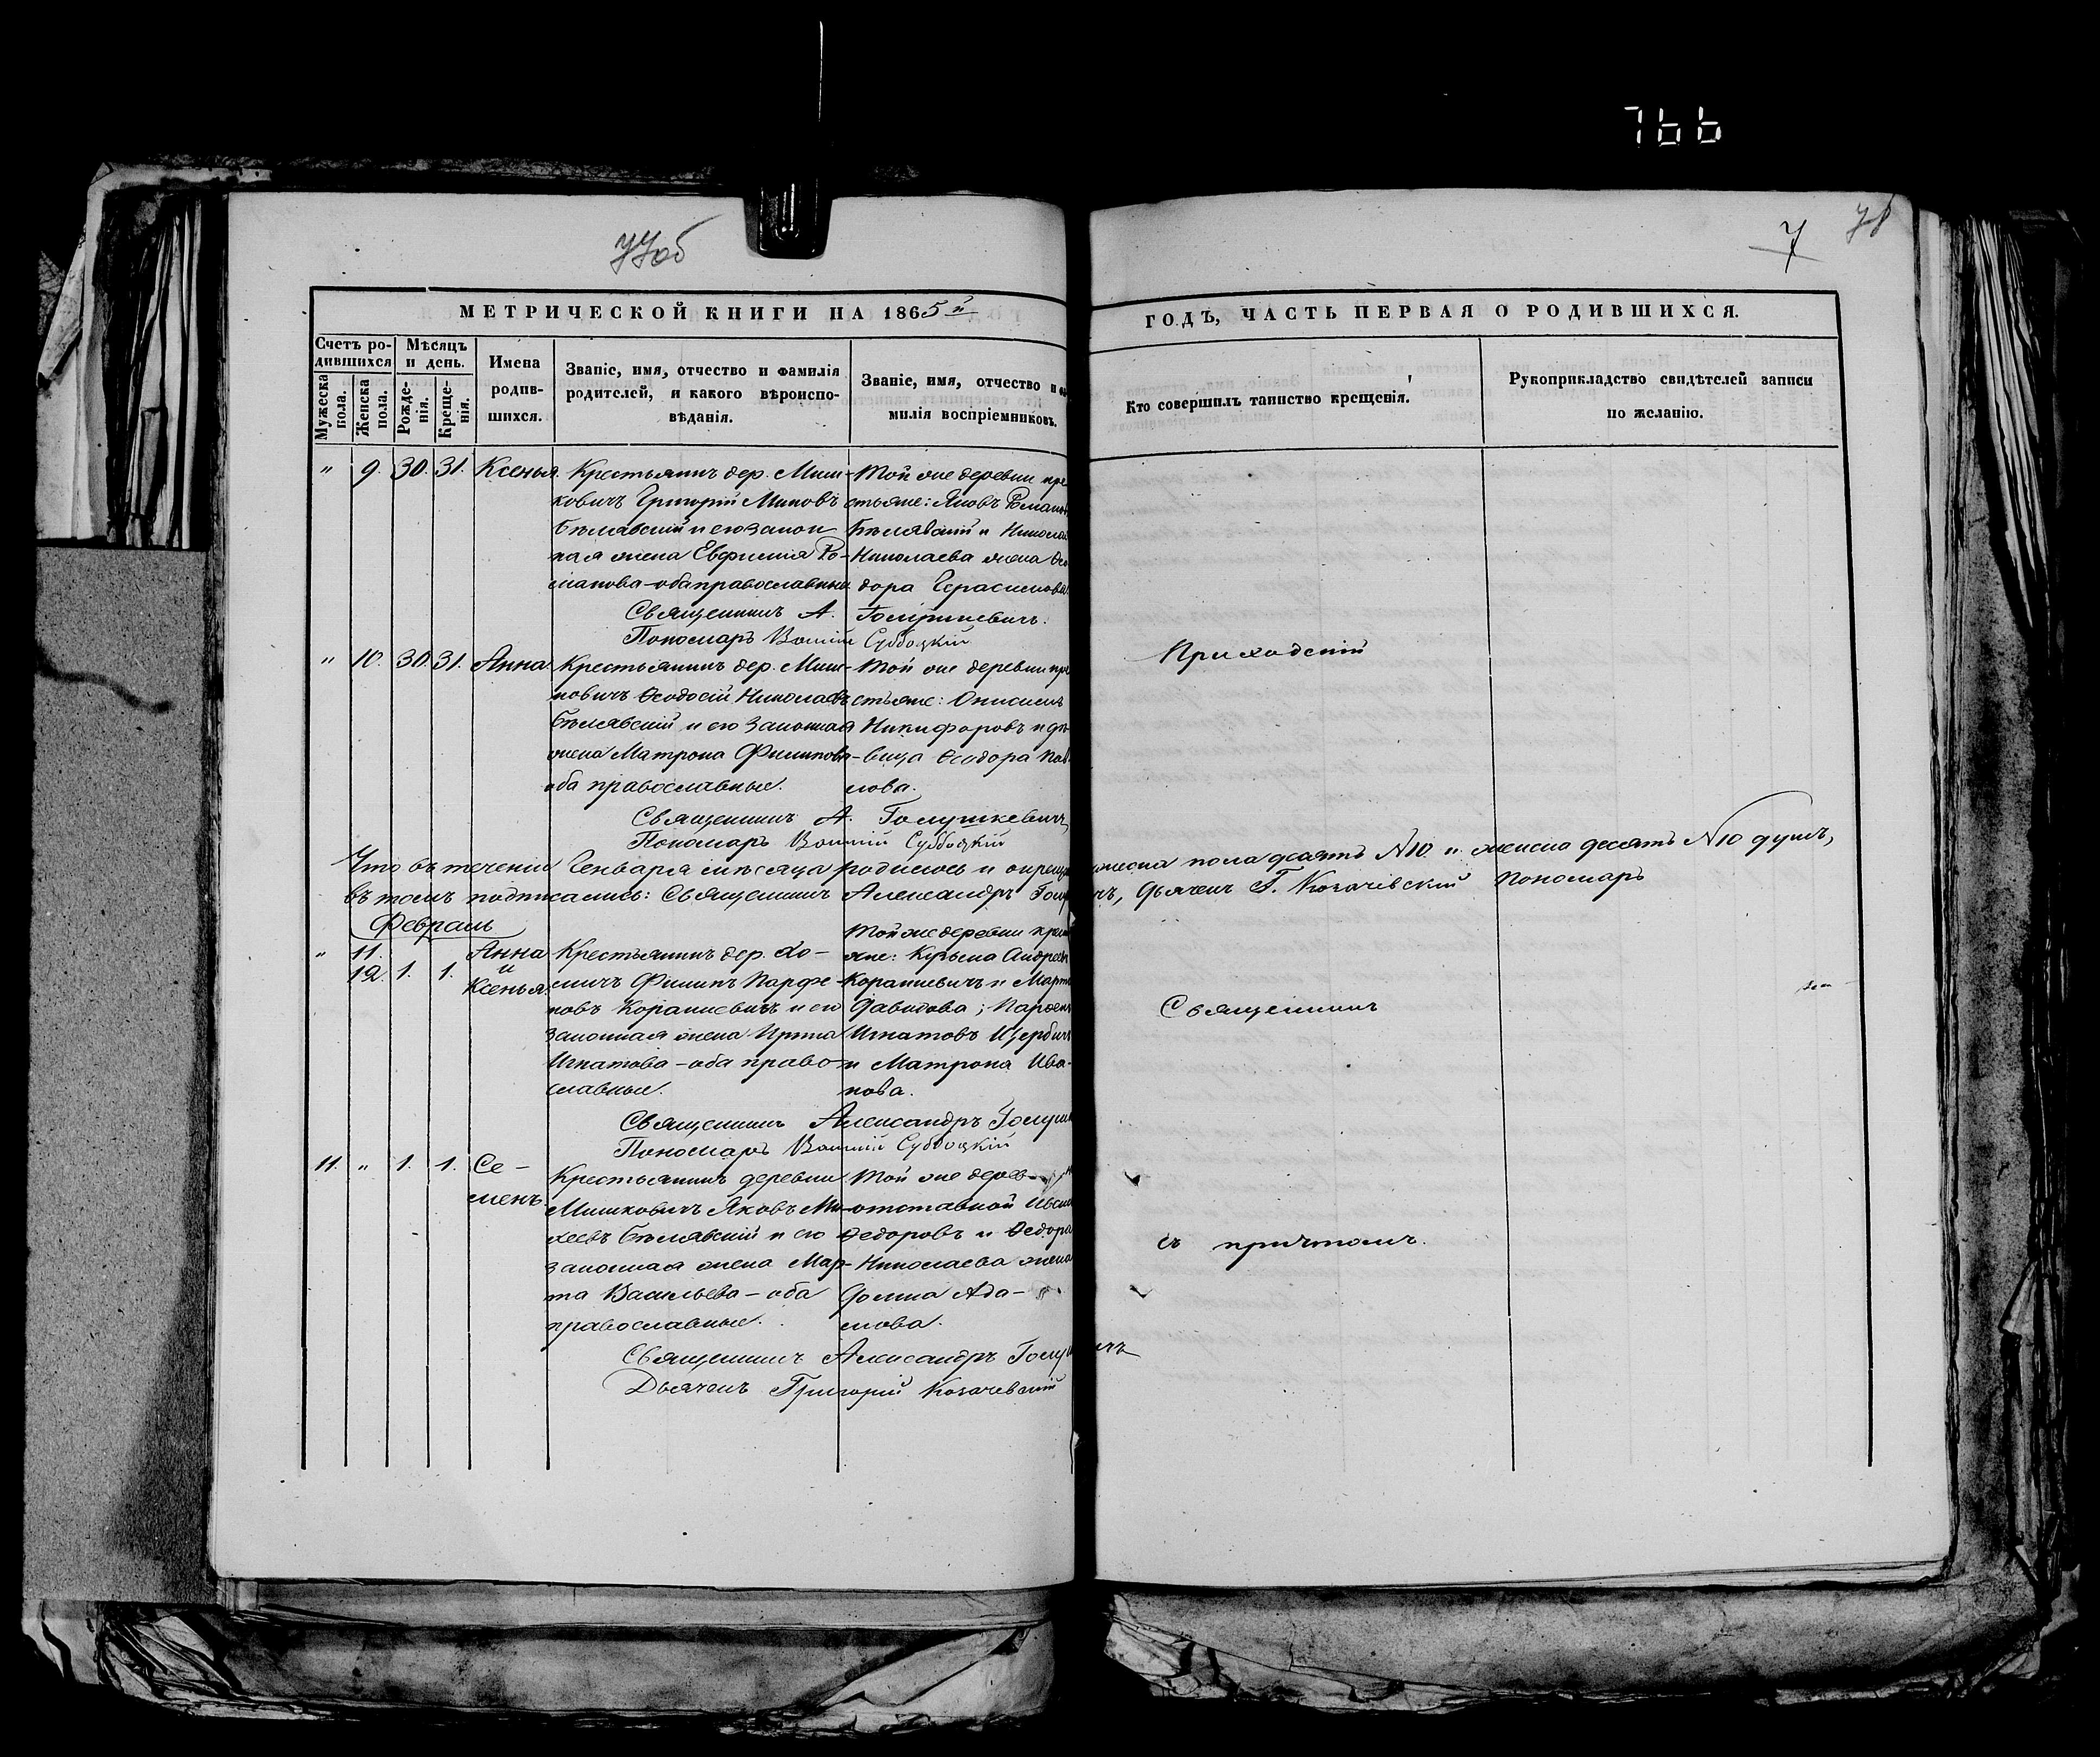 766
77об
7
78
МЕТРИЧЕСКОЙ КНИГИ НА 1865й
ГОДЪ, ЧАСТЬ ПЕРВАЯ О РОДИВШИХСЯ.
Счетъ ро-
дившихся
Мѣсяцъ
и день.
Мужеска
пола.
Женска
пола.
Рожде-
нія.
Креще-
нія.
Имена
родив-
шихся.
Званіе, имя, отчество и фамилія
родителей, и какого вѣроиспо-
вѣданія.
Званіе, имя, отчество и фа-
милія воспріемниковъ.
Кто совершилъ таинство крещенія.
Рукоприкладство свидѣтелей записи
по желанію.
" 9. 30. 31. Ксенья.
Крестьянинъ дер. Миш-
ковичъ Григорій Миновъ
Бѣлявскій и его закон
ная жена Евфимія Ро-
манова-оба православные
Той же деревни кре
стьяне: Яковъ Романов
Бѣлявскій и Николая
Николаева жена Ѳео
дора Герасимова.
Священникъ А. Голушкевичъ.
Пономарь Субботскій
" 10. 30. 31. Анна
Крестьянинъ дер. Миш-
ковичъ Ѳеодосій Николаевъ
Бѣлявскій и его законная
жена Матрона Филипова
оба православные.
Той же деревни кре
стьяне: Онисимъ
Никифоровъ и дѣ-
вица Ѳеодора Пав
лова.
Священникъ А. Голушкевичъ
Пономарь Субботскій
Приходскій
Что въ теченіи Генваря мѣсяца родилось и окрещ жеска пола десять №10 и женска десять №10 душъ,
въ томъ подписались: Священникъ Александръ Голу чъ, Дьячекъ Г. Козачевскій Пономарь
Февраль
" 11.
12. 1. 1.
Анна
и
Ксенья.
Крестьянинъ дер. Хо-
мичъ Филипъ Парфе-
новъ Коранкевичъ и его
законная жена Ирина
Игнатова - оба право-
славные.
Той же деревни крест
яне: Кузьма Андреев
Коранкевичъ и Марта
Давидова; Парѳенъ
Игнатовъ Щербич
и Матрона Ива-
нова.
Священникъ
Священникъ Александръ Голуш
Пономарь Субботскій
11. " 1. 1. Се-
менъ
Крестьянинъ деревни
Мишковичъ Яковъ Ми-
хеевъ Бѣлявскій и его
законная жена Мар-
та Васильева - оба
православные.
Той же дерев
отставной
Ѳедоровъ и Ѳедора
Николаева жена
Домна Ада-
мова.
съ причтомъ.
Священникъ Александръ Голу ичъ
Дьячекъ Григорій Козачевскій